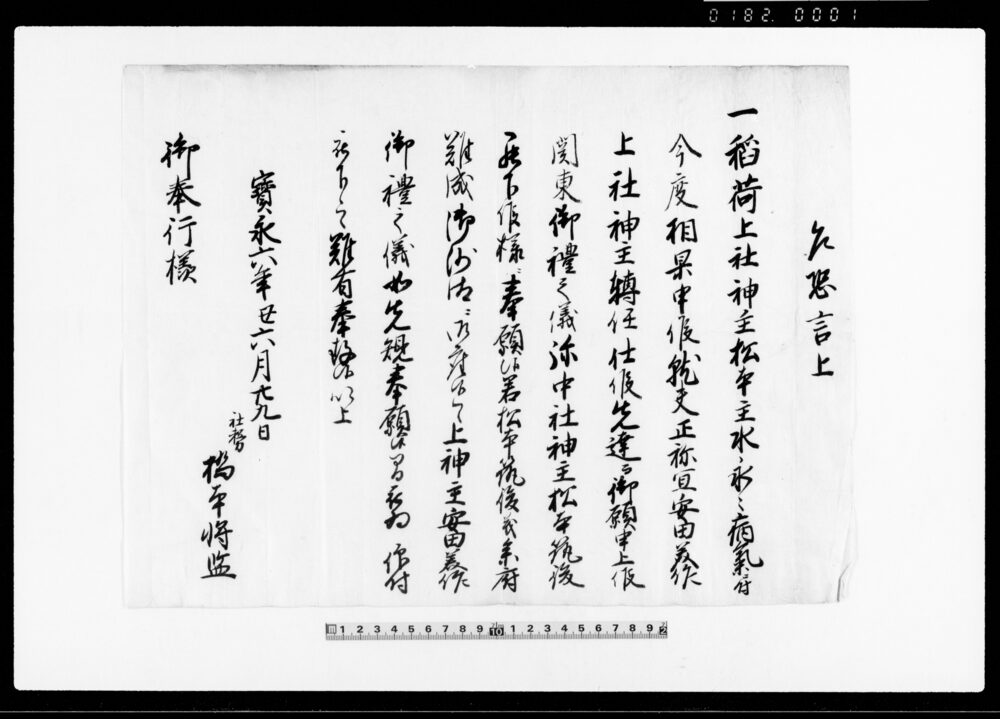 0182. 0001
乍恐言上
一稲荷上社神主松本主水永々病氣ニ付
今度相果申候就夫正祢宜安田美作
上社神主轉任仕候先達而御願申上候
関東御禮之儀弥中社神主松本筑後
被下候様ニ奉願候若松本筑後義参府
難成御沙汰ニ御座候ハヽ上神主安田美作
御禮之儀如先規奉願候間被為 仰付
被下候ハヽ難有奉存候以上
寶永六年丑六月廿九日
社務
橋本将監
御奉行様
1 2 3 4 5 6 7 8 9 10 1 2 3 4 5 6 7 8 9 2